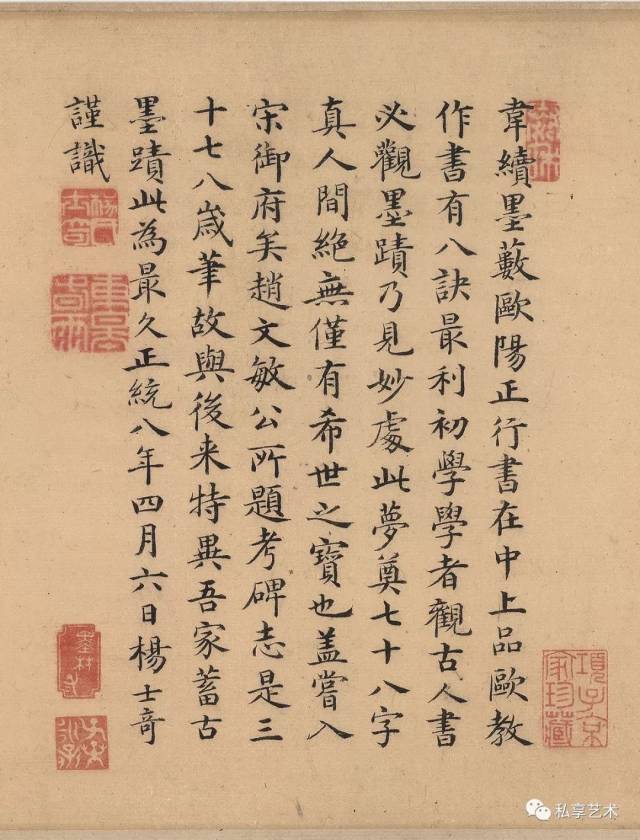 韋續墨藪歐陽正行書在中上品歐教
作書有八訣最利初學學者觀古人書
必觀墨蹟乃見妙處此夢奠七十八字
真人間絕無僅有希世之寶也蓋嘗入
宋御府矣趙文敏公所題考碑志是三
十七八歲筆故與後来特異吾家蓄古
墨蹟此為最久正統八年四月六日楊士奇
謹識
項子京家珍藏
私享艺术